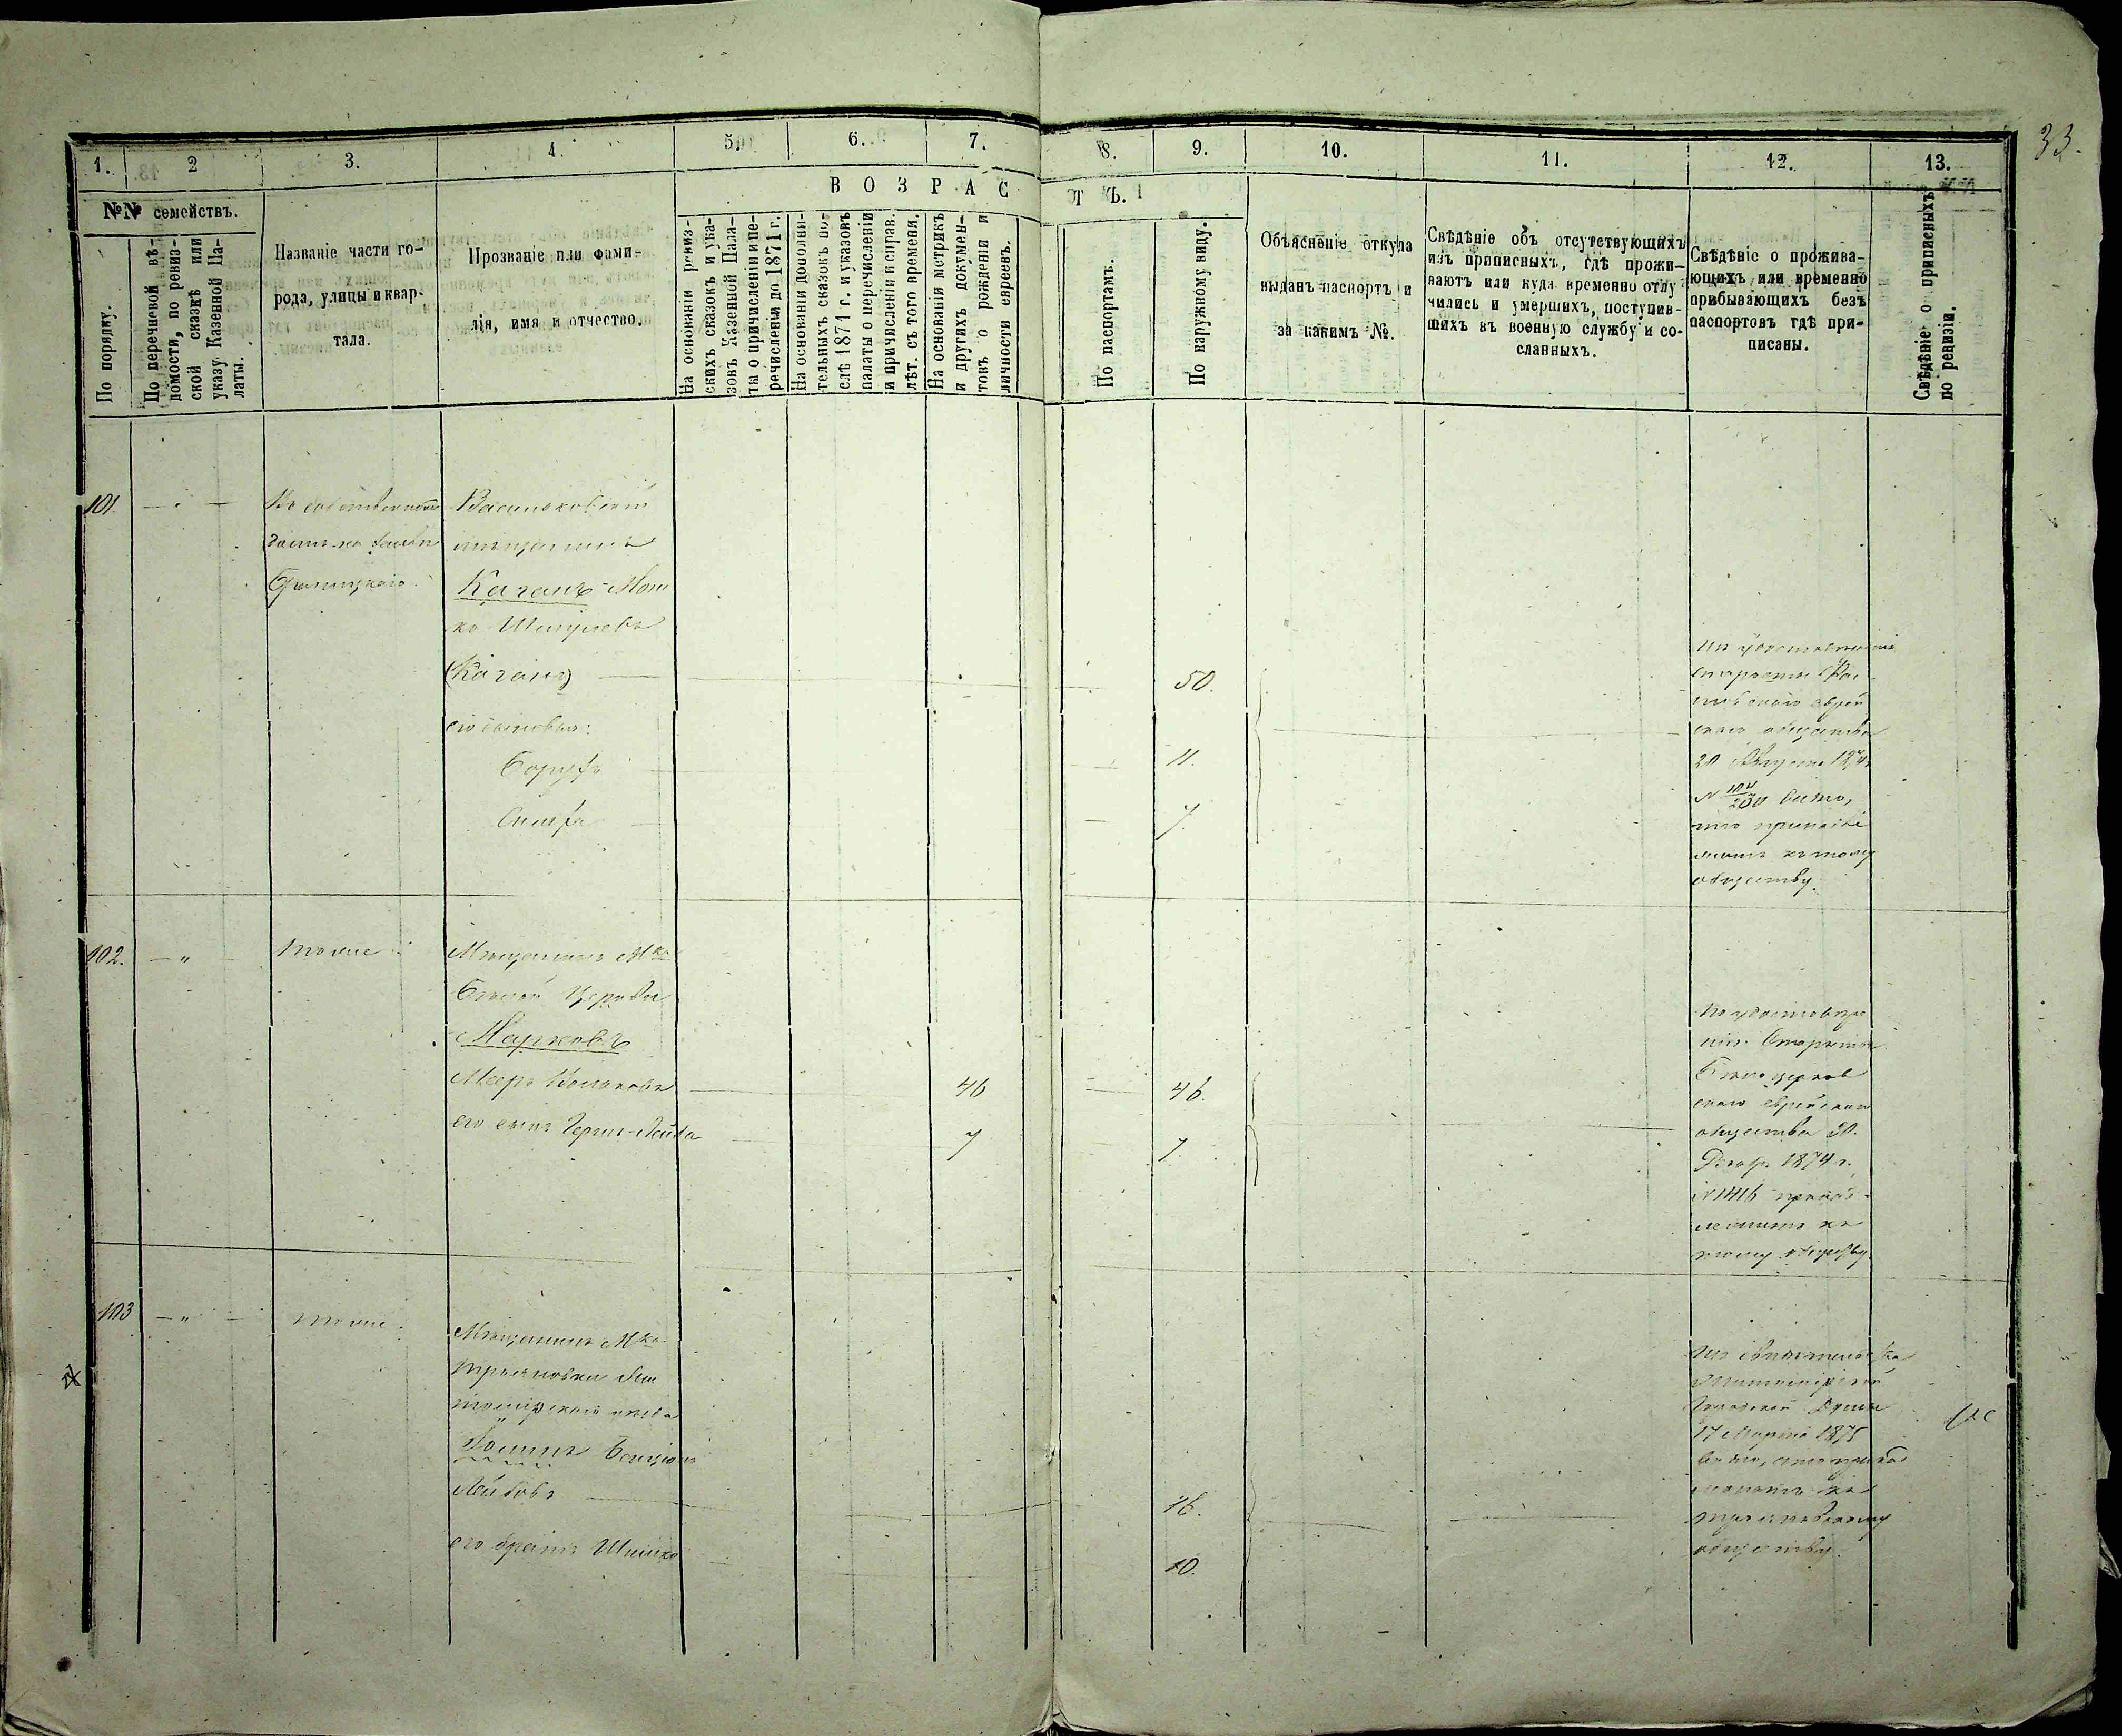 33.
1.
2
3.
4.
5.
6.
7.
8.
9.
10.
11.
12.
13.
ВОЗРАС
ТЪ.
№№ семействъ.
По порядку.
По перечневой вѣ-
домости, по ревиз-
ской сказкѣ или
указу Казенной Па-
латы.
Названіе части го-
рода, улицы и квар-
тала.
Прозваніе или фами-
лія, имя и отчество.
На основаніи ревиз-
скихъ сказокъ и ука-
зовъ Казенной Пала-
ты о причисленіи и пе-
речисленіи до 1871 г.
На основаніи дополни-
тельныхъ сказокъ по-
слѣ 1871 г. и указовъ
палаты о перечисленіи
и причисленіи и справ.
лѣт. съ того времени.
На основаніи метрикъ
и другихъ докумен-
товъ о рожденіи и
личности евреевъ.
По паспортамъ.
По наружному виду.
Объясненіе откуда
выданъ паспортъ и
за какимъ №.
Свѣдѣніе объ отсутствующихъ
изъ приписныхъ, гдѣ прожи-
ваютъ или куда временно отлу-
чились и умершихъ, поступив-
шихъ въ военную службу и со-
сланныхъ.
Свѣдѣніе о прожива-
ющихъ или временно
прибывающихъ безъ
паспортовъ гдѣ при-
писаны.
Свѣдѣніе о приписныхъ
по ревизіи.
101.
Въ собственномъ
домѣ на землѣ
Браницкаго.
Васильковскій
мѣщанинъ
Каганъ Мош
ко Шмулевъ
(Каганъ)
50.
его сыновья:
Борухъ
11.
Симха
7.
старосты
скаго еврей
скаго общества
20 Августа 1874
видно,
что принадле
житъ къ тому
обществу.
102.
тоже
Мѣщанинъ М-ка
Бѣлой Церкви
Марковъ
Мееръ
46
46.
его сынъ Герш-Лейба
7
7.
По удостовѣре
нію Старосты
Бѣлоцерков
скаго еврейскаго
общества 30.
1874 г.
№ 1416 принад-
лежитъ къ
тому обществу.
103
тоже.
Мѣщанинъ М-ка
Трояновки Жи
томірскаго уѣзда
Бенціонъ
Лейбовъ
16.
его братъ Шмилко
10.
Изъ свидѣтельства
Житомірской
Городской Думы
17 Марта 1875
видно, что принад
лежитъ къ
Трояновскому
обществу.